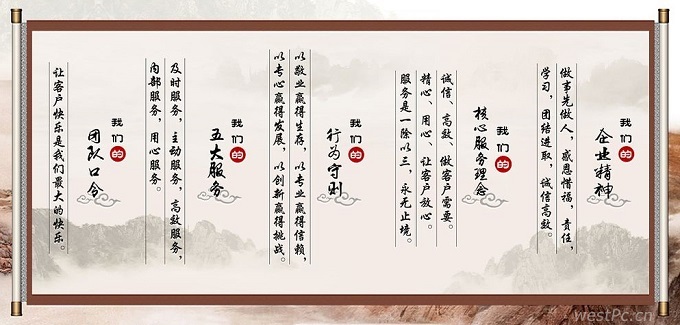 我们的
企业精神
做事先做人，感恩惜福，责任，
学习，团结进取，诚信高效。
我们的
核心服务理念
诚信、高效、做客户需要。
精心、用心、让客户放心。
服务是一除以三，永无止境。
我们的
行为守则
以敬业赢得生存，以专业赢得信赖，
以专心赢得发展，以创新赢得挑战。
我们的
五大服务
及时服务，主动服务，高效服务，
内部服务，用心服务。
我们的
团队口令
让客户快乐是我们最大的快乐。
westPc.cn